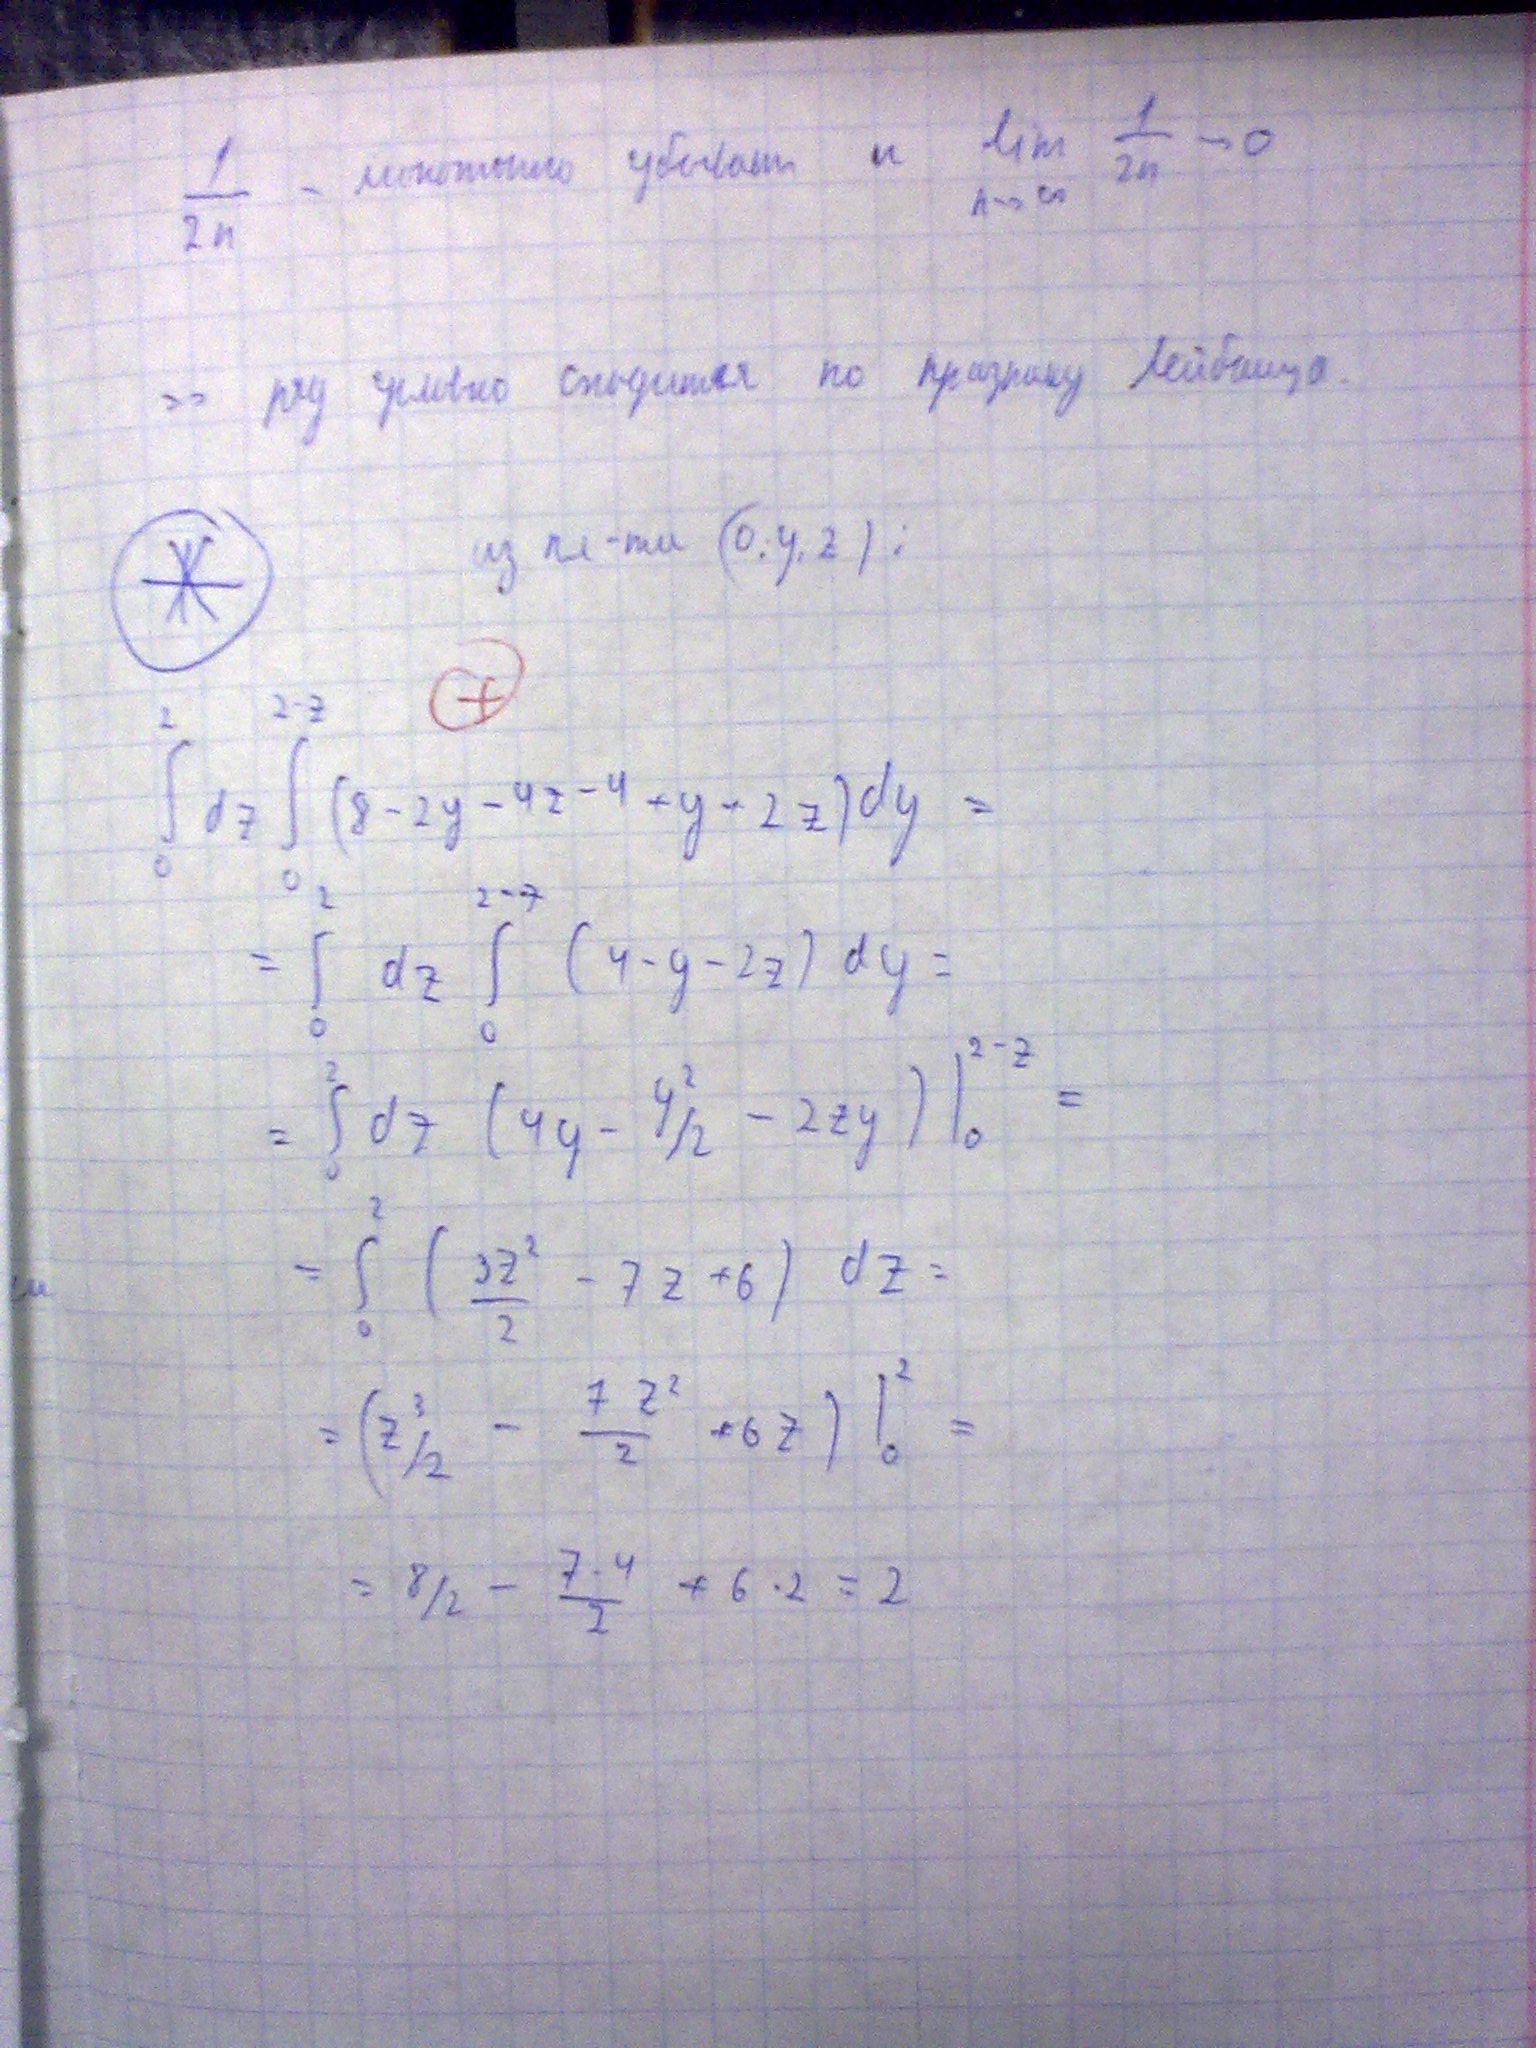 1/2n - монотонно убывает и lim n→∞ 1/2n → 0
=> ряд условно сходится по признаку Лейбница.
Ж
из пл-ти (0, y, z):
+
∫₀² dz ∫₀^(2-z) (8 - 2y - 4z - 4 + y + 2z) dy =
= ∫₀² dz ∫₀^(2-z) (4 - y - 2z) dy =
= ∫₀² dz (4y - y²/2 - 2zy) |₀^(2-z) =
= ∫₀² (3z²/2 - 7z + 6) dz =
= (z³/2 - 7z²/2 + 6z) |₀² =
= 8/2 - 7·4/2 + 6·2 = 2